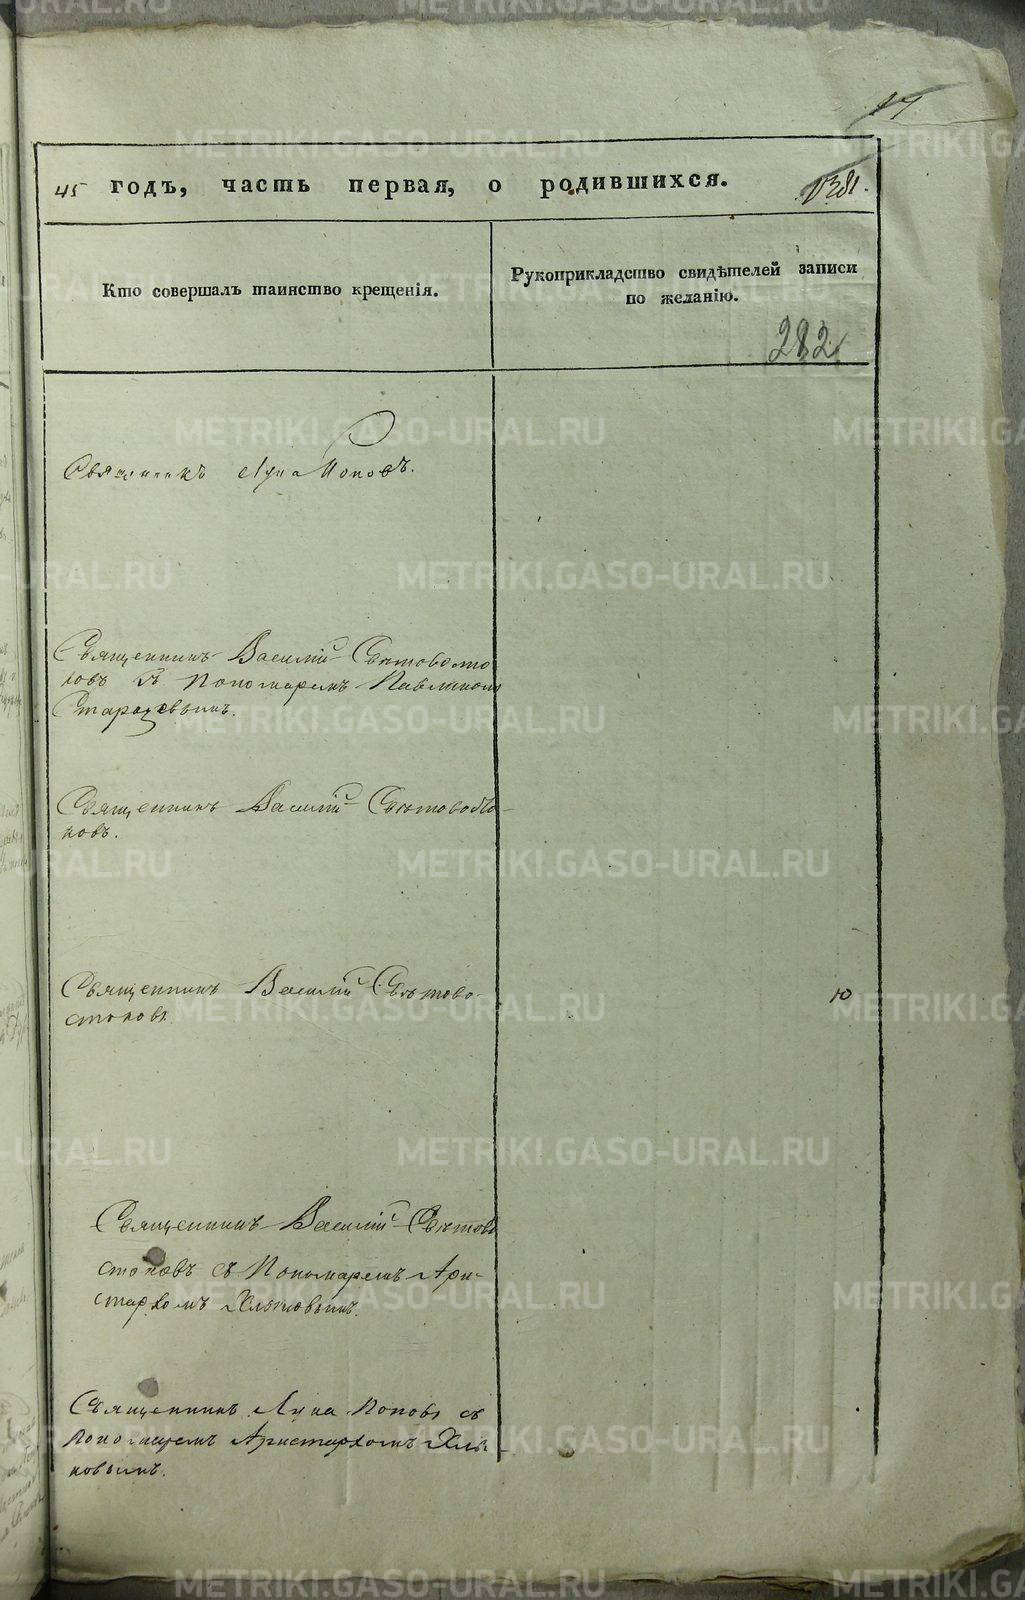 17
45 годъ, часть первая, о родившихся.
Кто совершалъ таинство крещенія.
Рукоприкладство свидѣтелей записи
по желанію.
282
Священникъ Лука Поповъ.
Священникъ Василій Свѣтовосто
ковъ съ Пономаремъ Павлиномъ
Священникъ Василій Свѣтовосто-
ковъ.
Священникъ Василій Свѣтово-
стоковъ
Священникъ Василій Свѣтово
стоковъ съ Пономаремъ Ари-
стархомъ Хлыновымъ.
Священникъ Лука Поповъ съ
Пономаремъ Аристархомъ Хлы-
новымъ.
METRIKI.GASO-URAL.RU